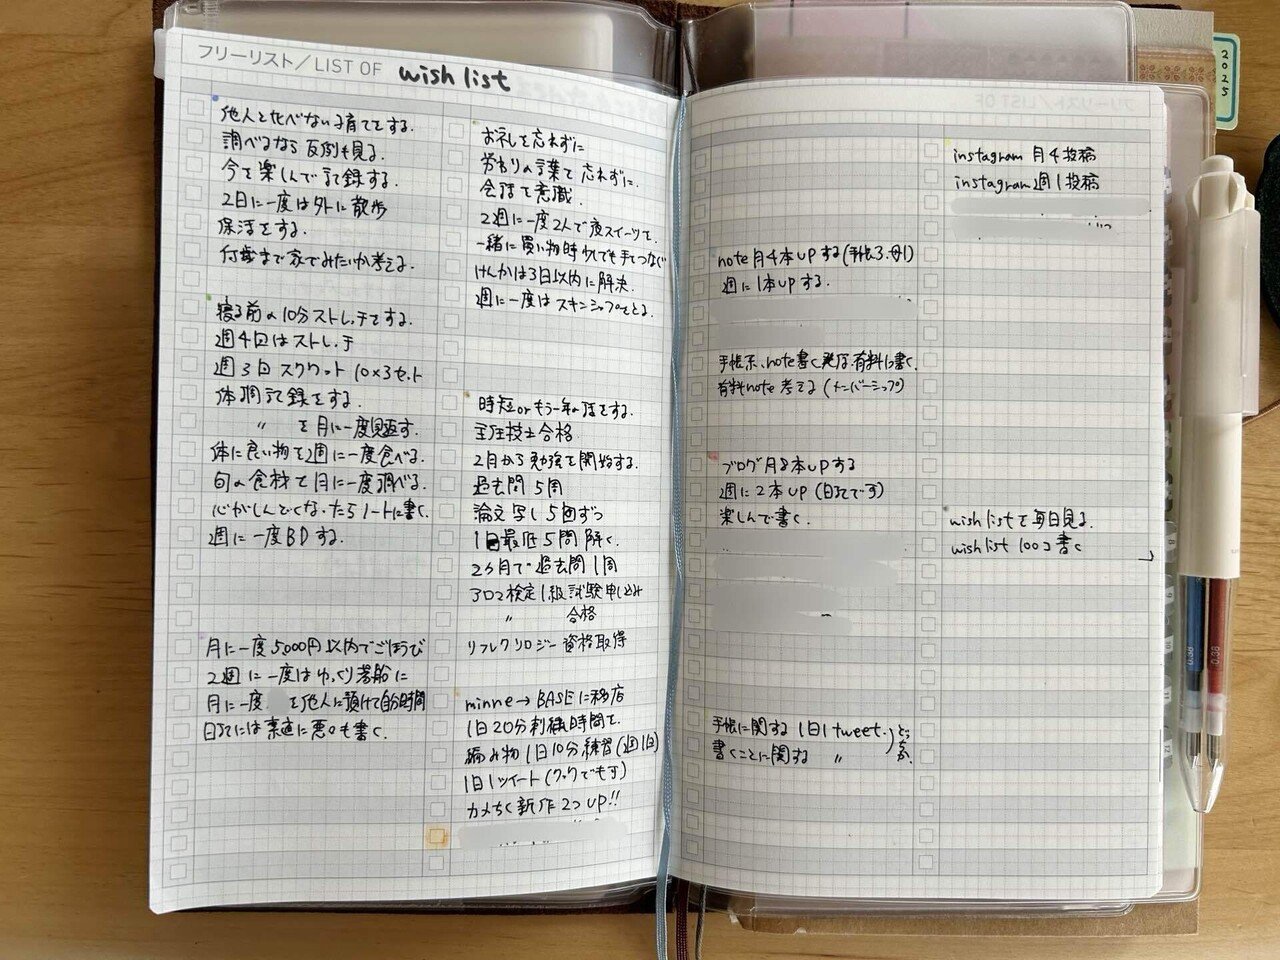 フリーリスト／LIST OF wish list
他人と比べない子育てをする.
調べるなら反例も見る.
今を楽しんで記録する.
2日に一度は外に散歩
保活をする.
何歳まで家でみたいか考える.
寝る前の10分ストレッチをする.
週4回はストレッチ
週3回 スクワット 10×3セット
体調記録をする.
〃 を月に一度見返す.
体に良い物を2週に一度食べる.
旬の食材を月に一度調べる.
心がしんどくなったらノートに書く.
週に一度BDする.
月に一度5,000円以内でごほうび
2週に一度はゆっくり
月に一度 を他人に預けて自分時間
日記には素直に悪口も書く.
お礼を忘れずに
労わりの言葉を忘れずに.
会話を意識.
2週に一度2人で夜スイーツを.
一緒に買い物時少しでも手をつなぐ
けんかは3日以内に解決.
週に一度はスキンシップをとる.
時短orもう一年の話をする.
主任技士合格
2月から勉強を開始する.
過去問5周
論文写し5回ずつ
1日最低5問解く.
2ヶ月で過去問1周
アロマ検定1級試験申し込み
〃 合格
リフレクソロジー資格取得
minne→BASEに移店
1日20分刺繍時間を.
編み物1日10分練習(週1回)
1日1ツイート(クックでも可)
カメちく新作2つup!!
note月4本upする(手帳3.母1)
週に1本upする.
手帳系、note書く 有料に書く.
有料note考える(メンバーシップ)
ブログ月8本upする
週に2本up(日記です)
楽しんで書く.
手帳に関する1日1tweet.
書くことに関する 〃
どっちか
instagram 月4投稿
instagram 週1投稿
wish listを毎日見る.
wish list 100コ書く
2025
0.38
0.38